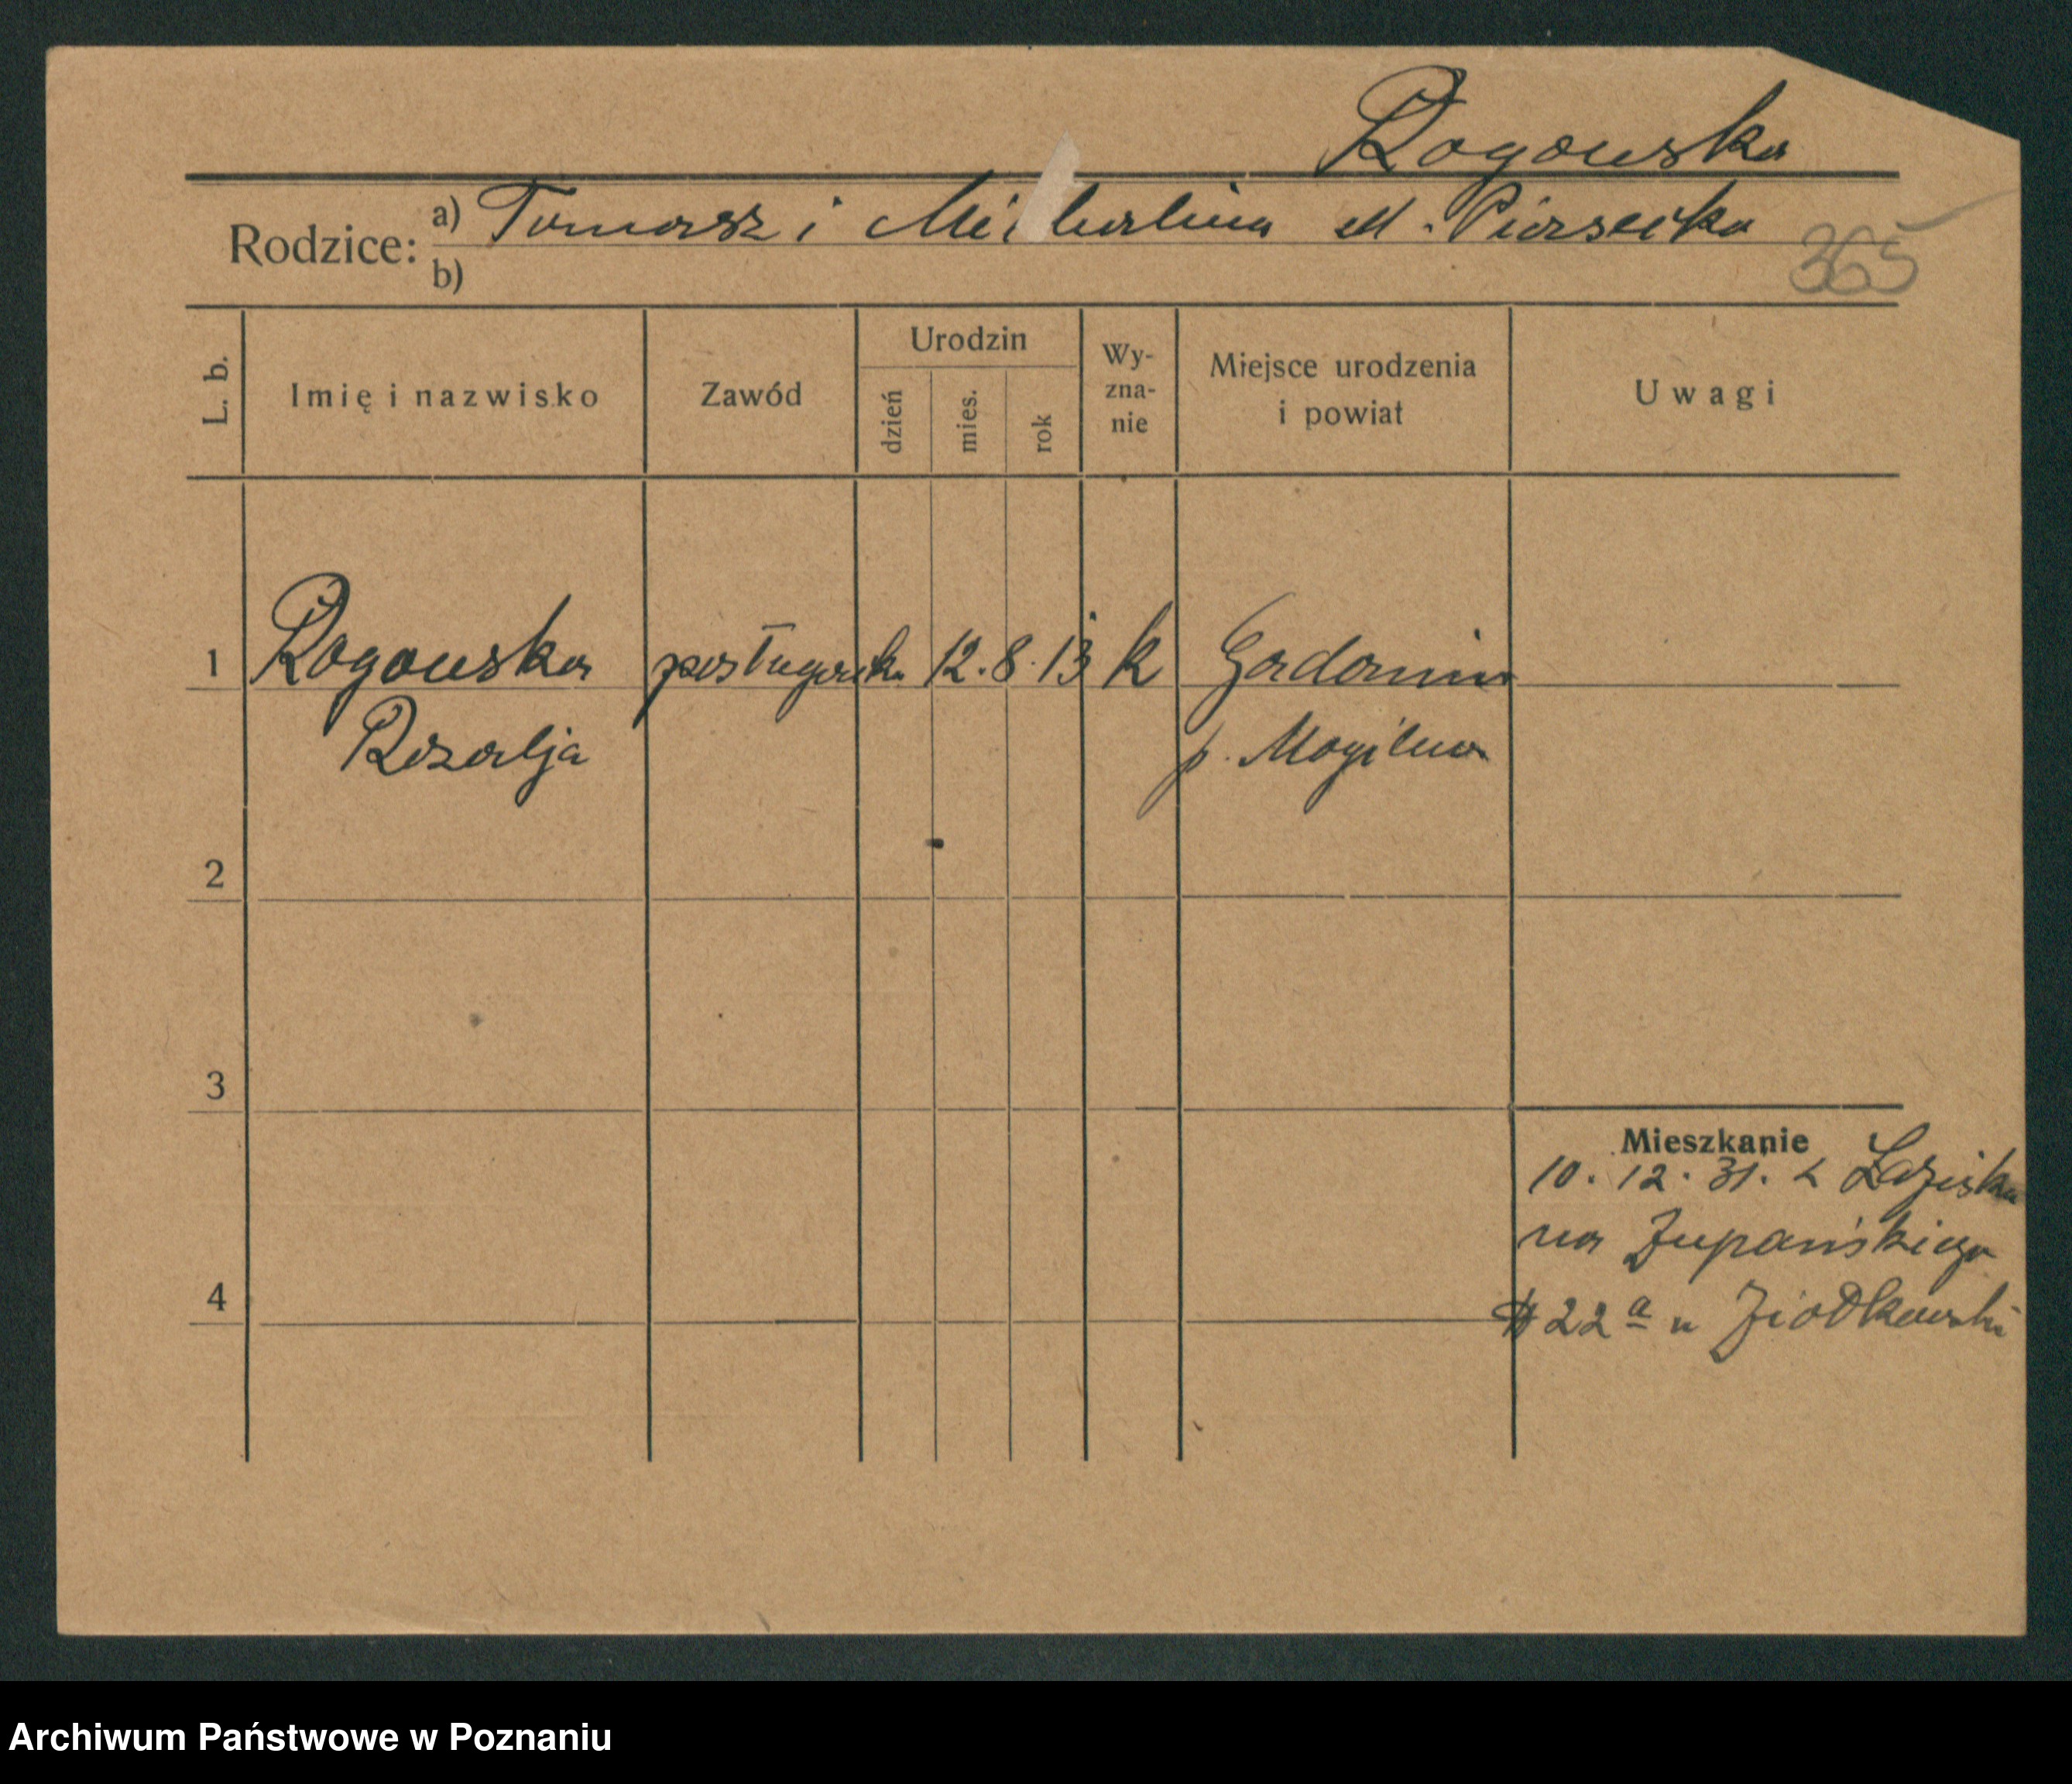 Rogowska
Rodzice: a) Tomasz i Michalina M. Piasecka
b)
365
L. b.
Imię i nazwisko
Zawód
Urodzin
dzień
mies.
rok
Wy-
zna-
nie
Miejsce urodzenia
i powiat
Uwagi
1 Rogowska posługaczka 12. 8. 13 k
Rozalja
p. Mogilno
2
3
Mieszkanie
10. 12. 31. z Łaziska
na Żupańskiego
22 a u Ziołkowski
4
Archiwum Państwowe w Poznaniu